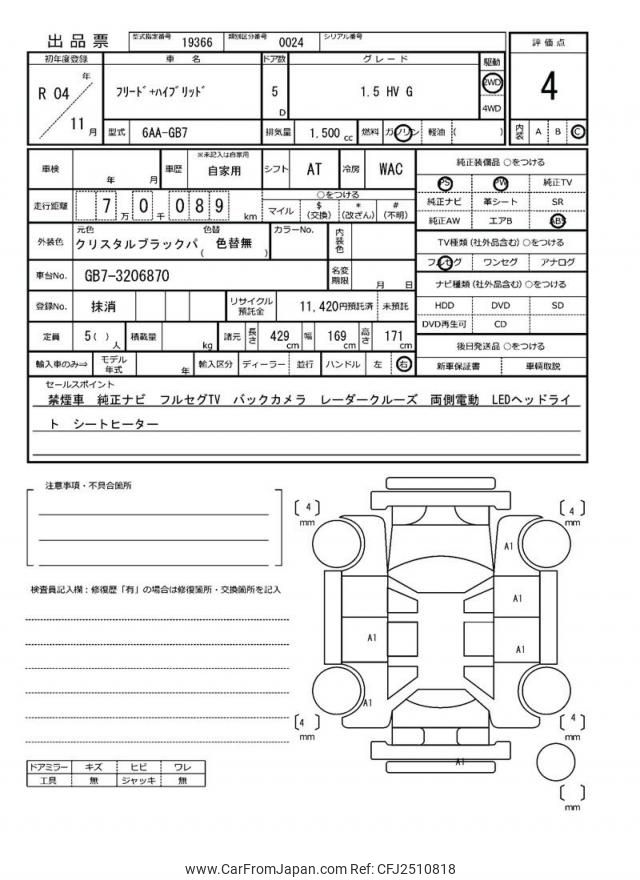 出品票
型式指定番号 19366 類別区分番号 0024 シリアル番号
評価点
4
内装 A B C
初年度登録 車名 ドア数 グレード 駆動
R 04 年 11 月
ﾌﾘｰﾄﾞ+ﾊｲﾌﾞﾘｯﾄﾞ 5 D 1.5 HV G 2WD 4WD
型式 6AA-GB7 排気量 1.500 cc 燃料 ガソリン 軽油 ( )
車検 年 月 車歴 ※未記入は自家用 自家用 シフト AT 冷房 WAC
走行距離 7 万 0 千 0 8 9 km
○をつける
マイル $ (交換) * (改ざん) # (不明)
外装色 元色 クリスタルブラックパ 色替 ( 色替無 ) カラーNo. 内装色
車台No. GB7-3206870 名変期限 月 日
登録No. 抹消 リサイクル預託金 11,420円預託済 未預託
定員 5 ( ) 人 積載量 kg 諸元 長さ 429 cm 幅 169 cm 高さ 171 cm
輸入車のみ⇒ モデル年式 年 輸入区分 ディーラー 並行 ハンドル 左 右
純正装備品 ○をつける
PS PW 純正TV
純正ナビ 革シート SR
純正AW エアB ABS
TV種類 (社外品含む) ○をつける
フルセグ ワンセグ アナログ
ナビ種類 (社外品含む) ○をつける
HDD DVD SD
DVD再生可 CD
後日発送品 ○をつける
新車保証書 車輌取説
セールスポイント
禁煙車 純正ナビ フルセグTV バックカメラ レーダークルーズ 両側電動 LEDヘッドライ
ト シートヒーター
注意事項・不具合箇所
検査員記入欄：修復歴「有」の場合は修復箇所・交換箇所を記入
ドアミラー キズ ヒビ ワレ
工具 無 ジャッキ 無
[ 4 ] mm
[ 4 ] mm
A1
A1
A1
A1
A1
[ 4 ] mm
[ 4 ] mm
A1
[ ] mm
www.CarFromJapan.com Ref: CFJ2510818